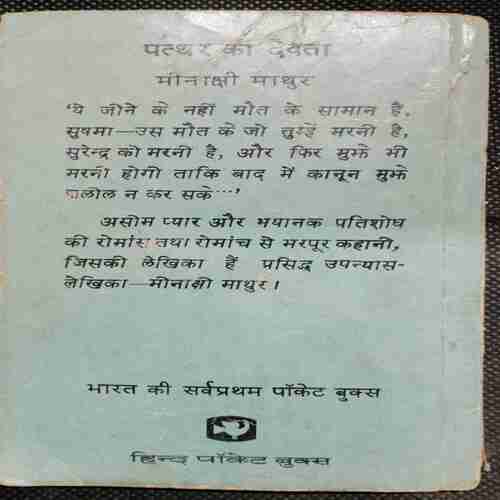 पत्थर का देवता
मीनाक्षी माथुर
'ये जीने के नहीं मौत के सामान हैं,
सुषमा—उस मौत के जो तुम्हें मरनी है,
सुरेन्द्र को मरनी है, और फिर मुझे भी
मरनी होगी ताकि बाद में कानून मुझे
ज़लील न कर सके···'
असीम प्यार और भयानक प्रतिशोध
की रोमांस तथा रोमांच से भरपूर कहानी,
जिसकी लेखिका हैं प्रसिद्ध उपन्यास-
लेखिका—मीनाक्षी माथुर।
भारत की सर्वप्रथम पॉकेट बुक्स
हिन्द पॉकेट बुक्स